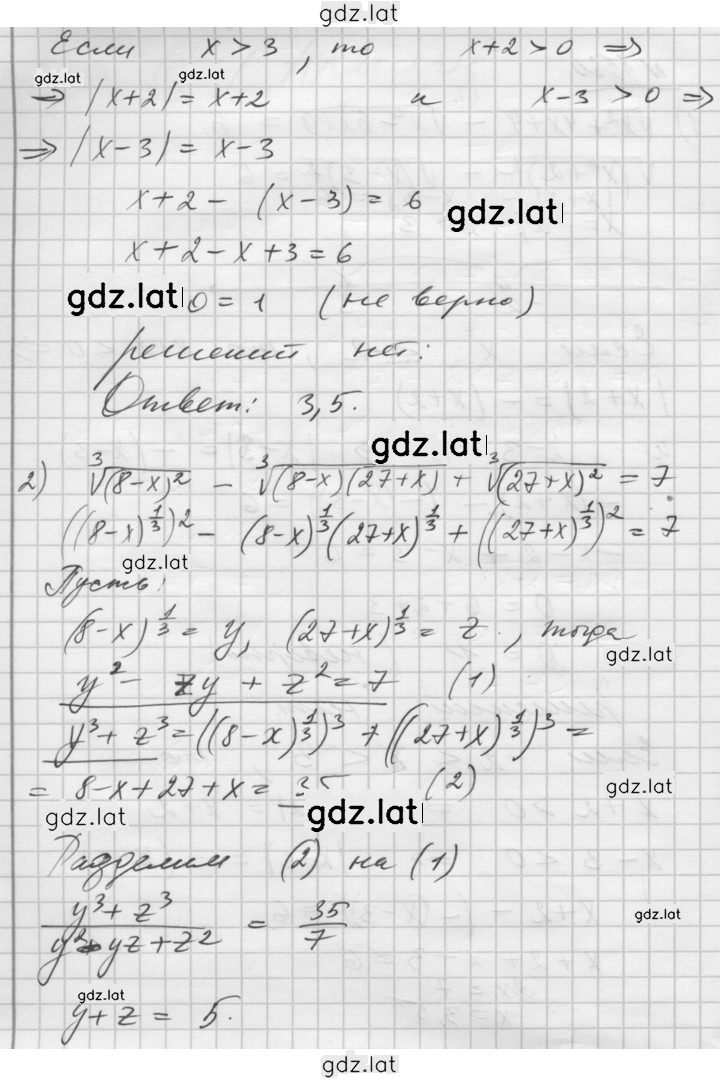 gdz.lat
Если x > 3, то x+2 > 0 ⇒
gdz.lat gdz.lat
⇒ |x+2| = x+2 и x−3 > 0 ⇒
⇒ |x−3| = x−3
x+2 − (x−3) = 6
gdz.lat
x+2−x+3 = 6
gdz.lat 0 = 1 (не верно)
решений нет:
Ответ: 3,5.
gdz.lat
2) ∛(8−x)² − ∛(8−x)(27+x) + ∛(27+x)² = 7
((8−x)^⅓)² − (8−x)^⅓(27+x)^⅓ + ((27+x)^⅓)² = 7
gdz.lat
Пусть:
(8−x)^⅓ = y, (27+x)^⅓ = z, тогда
gdz.lat
y² − zy + z² = 7 (1)
y³ + z³ = ((8−x)^⅓)³ + ((27+x)^⅓)³ =
= 8−x+27+x = 35 (2)
gdz.lat
gdz.lat gdz.lat
Разделим (2) на (1)
y³ + z³ / y² − yz + z² = 35 / 7
gdz.lat
gdz.lat
y + z = 5.
gdz.lat